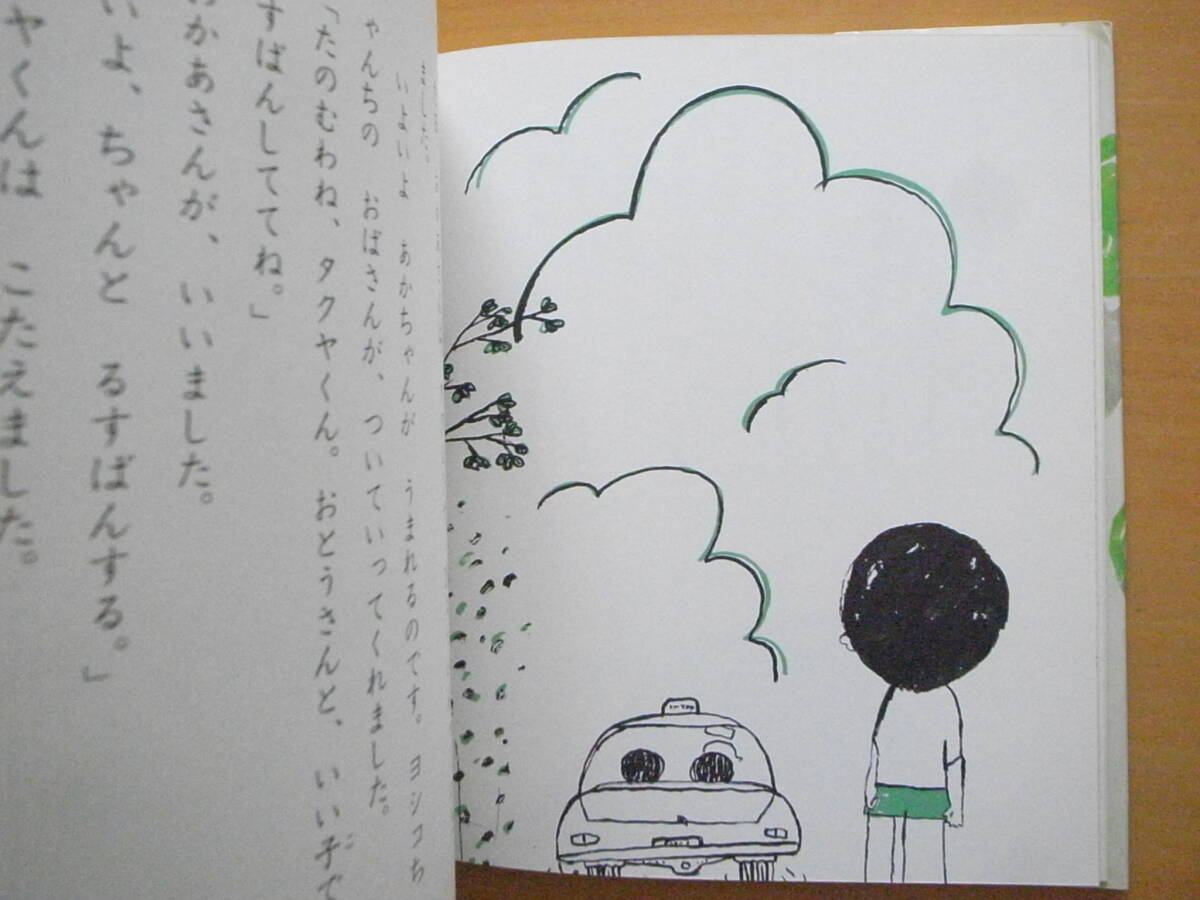 ました。
いよいよ　あかちゃんが　うまれるのです。ヨシコち
ゃんちの　おばさんが、ついていってくれました。
「たのむわね、タクヤくん。おとうさんと、いい子で
すばんしててね。」
おかあさんが、いいました。
いよ、ちゃんと　るすばんする。」
ヤくんは　こたえました。